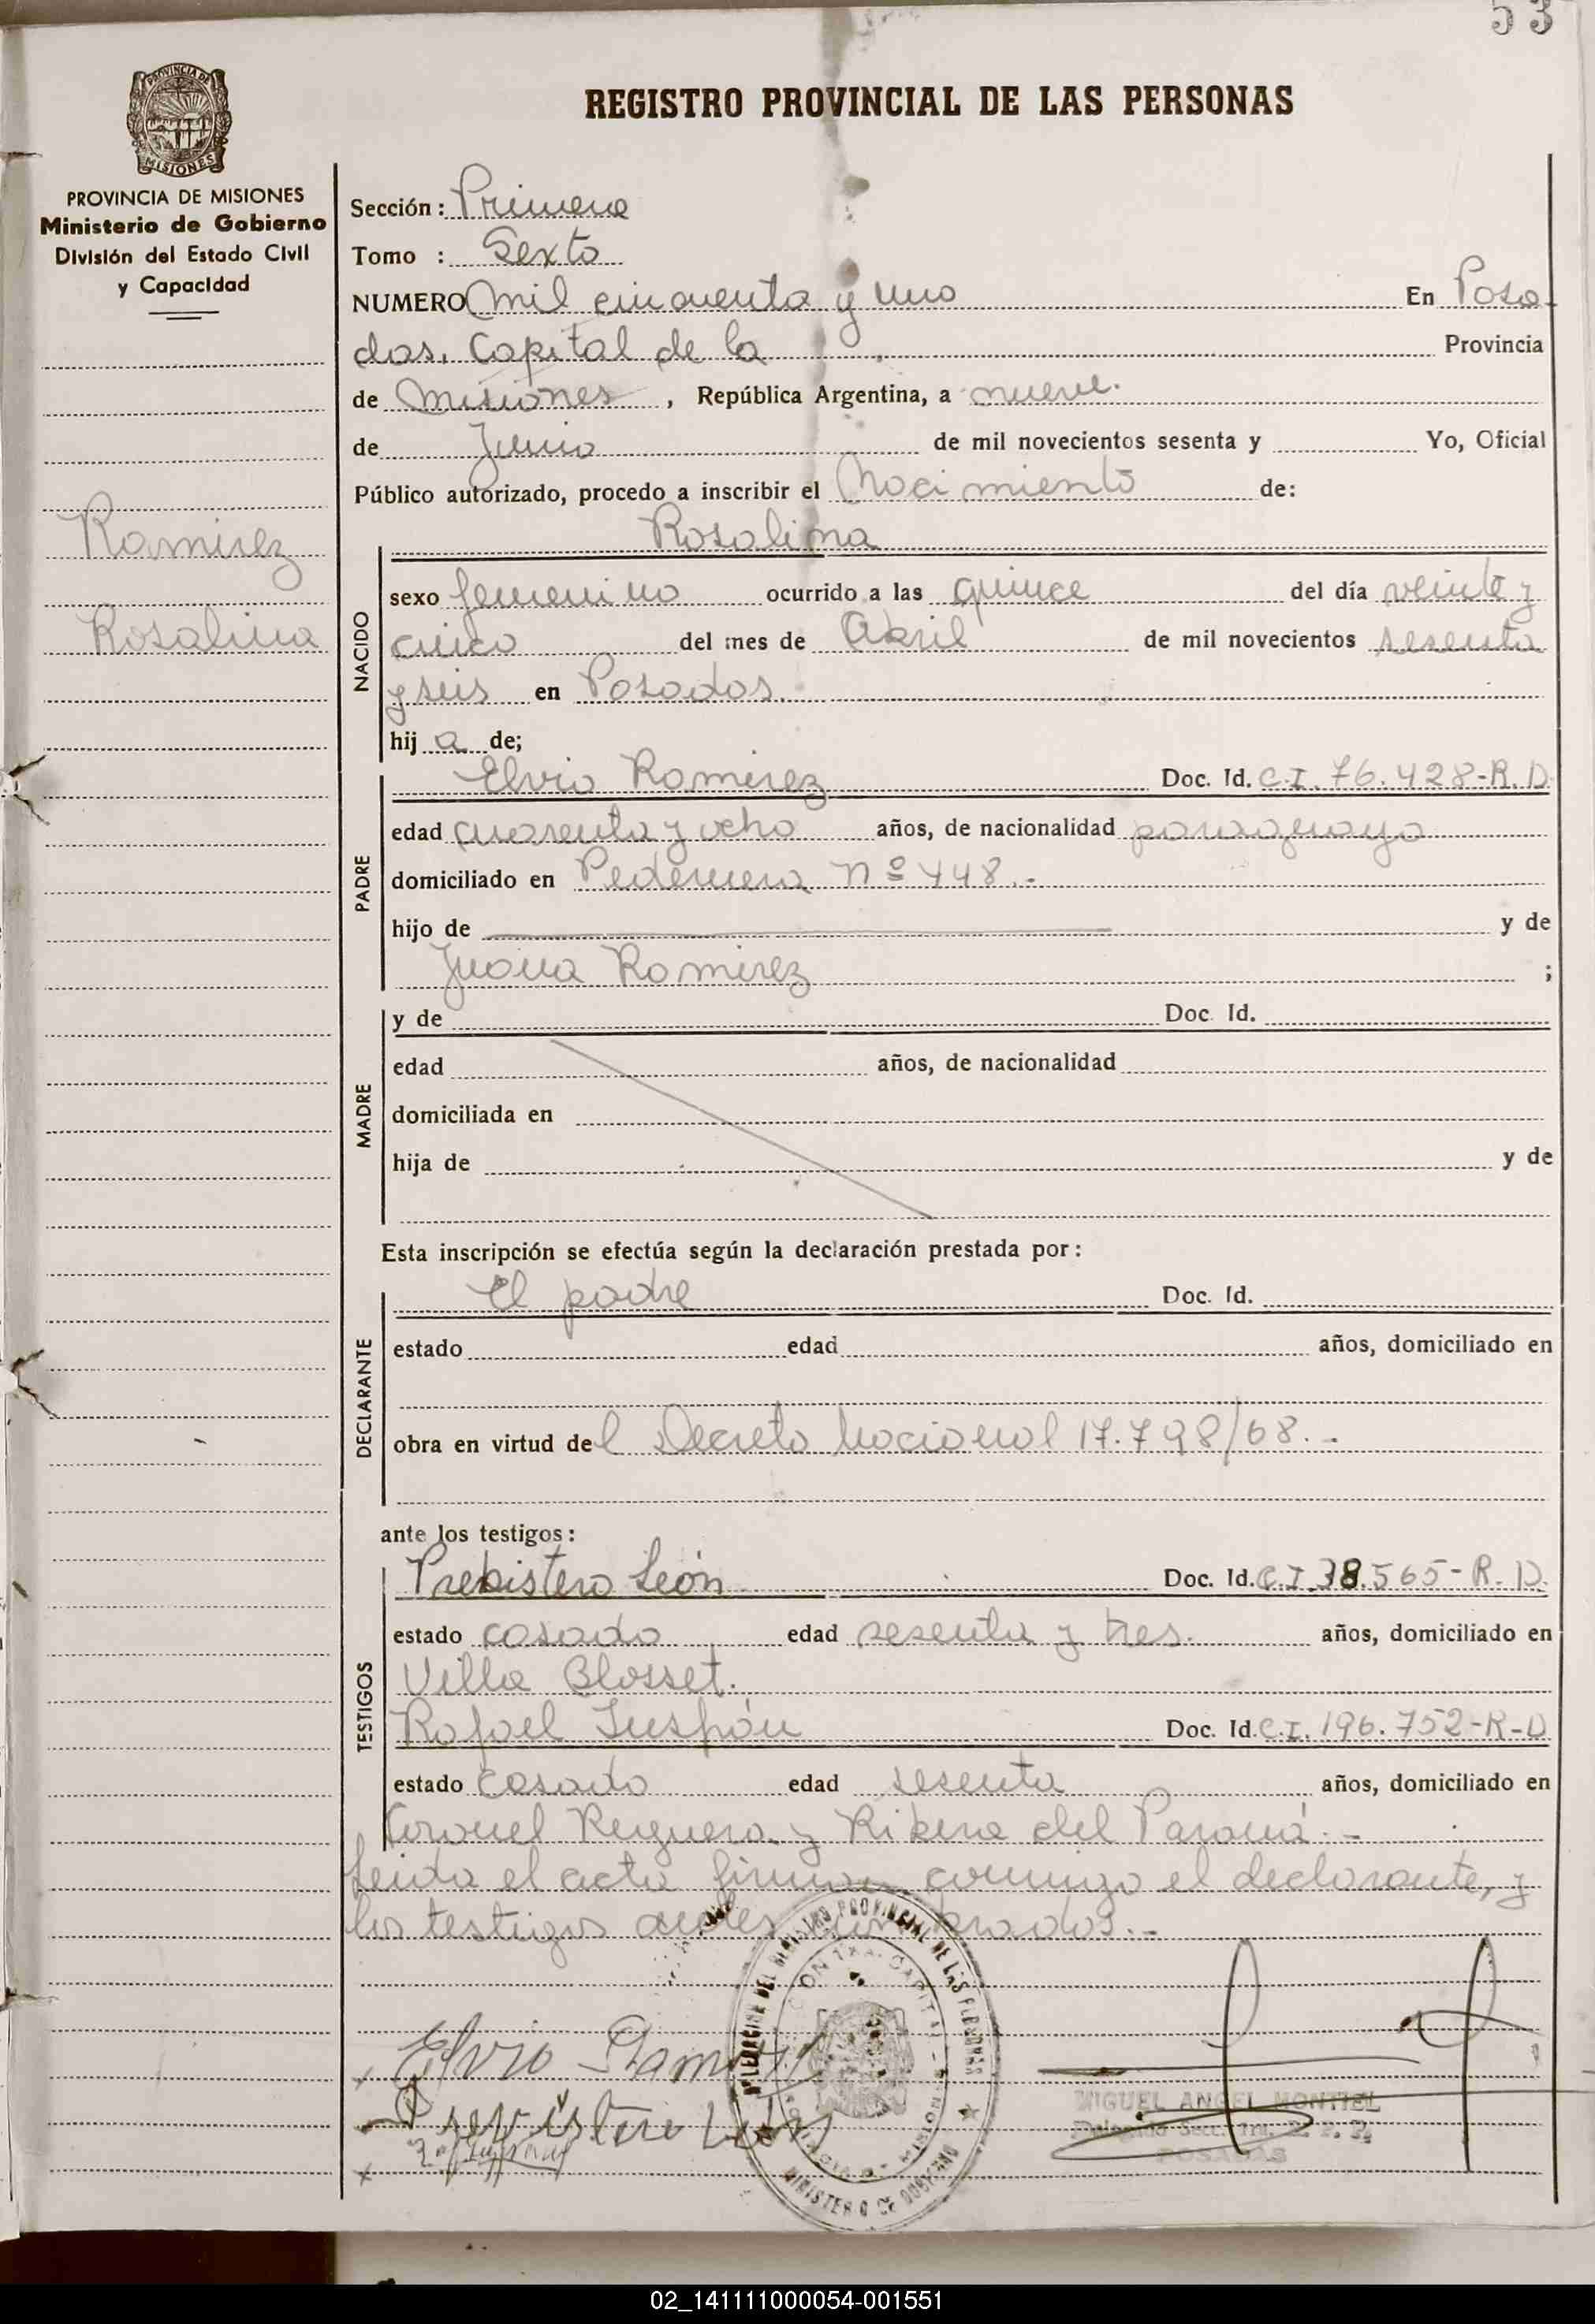 53
PROVINCIA DE
MISIONES
PROVINCIA DE MISIONES
Ministerio de Gobierno
División del Estado Civil
y Capacidad
Ramirez
Rosalina
REGISTRO PROVINCIAL DE LAS PERSONAS
Sección: Primera
Tomo : Sexto
NUMERO mil cincuenta y uno En Posa
das, Capital de la Provincia
de Misiones, República Argentina, a nueve.
de Junio de mil novecientos sesenta y Yo, Oficial
Público autorizado, procedo a inscribir el Nacimiento de:
Rosalina
NACIDO
sexo femenino ocurrido a las quince del día veinte y
cinco del mes de Abril de mil novecientos sesenta
y seis en Posadas.
hij a de;
PADRE
Elvio Ramirez Doc. Id. C.I. 76.428-R.D.
edad cuarenta y ocho años, de nacionalidad paraguayo
domiciliado en Pedernera Nº 448.-
hijo de y de
Juana Ramirez ;
MADRE
y de Doc. Id.
edad años, de nacionalidad
domiciliada en
hija de y de
Esta inscripción se efectúa según la declaración prestada por:
DECLARANTE
El padre Doc. Id.
estado edad años, domiciliado en
obra en virtud del Decreto Nacional 17.798/68.-
ante los testigos:
TESTIGOS
Prebistero León Doc. Id. C.I. 38.565-R.D.
estado casado edad sesenta y tres. años, domiciliado en
Villa Blosset.
Rafael Doc. Id. C.I. 196.752-R-D
estado casado edad sesenta años, domiciliado en
Coronel Reguera y Ribera del Paraná.-
Leida el acta firman conmigo el declarante, y
los testigos arriba nombrados.-
Elvio Ramirez
MIGUEL ANGEL MONTIEL
POSADAS
REGISTRO PROVINCIAL DE LAS PERSONAS
MINISTERIO DE GOBIERNO
02_141111000054-001551